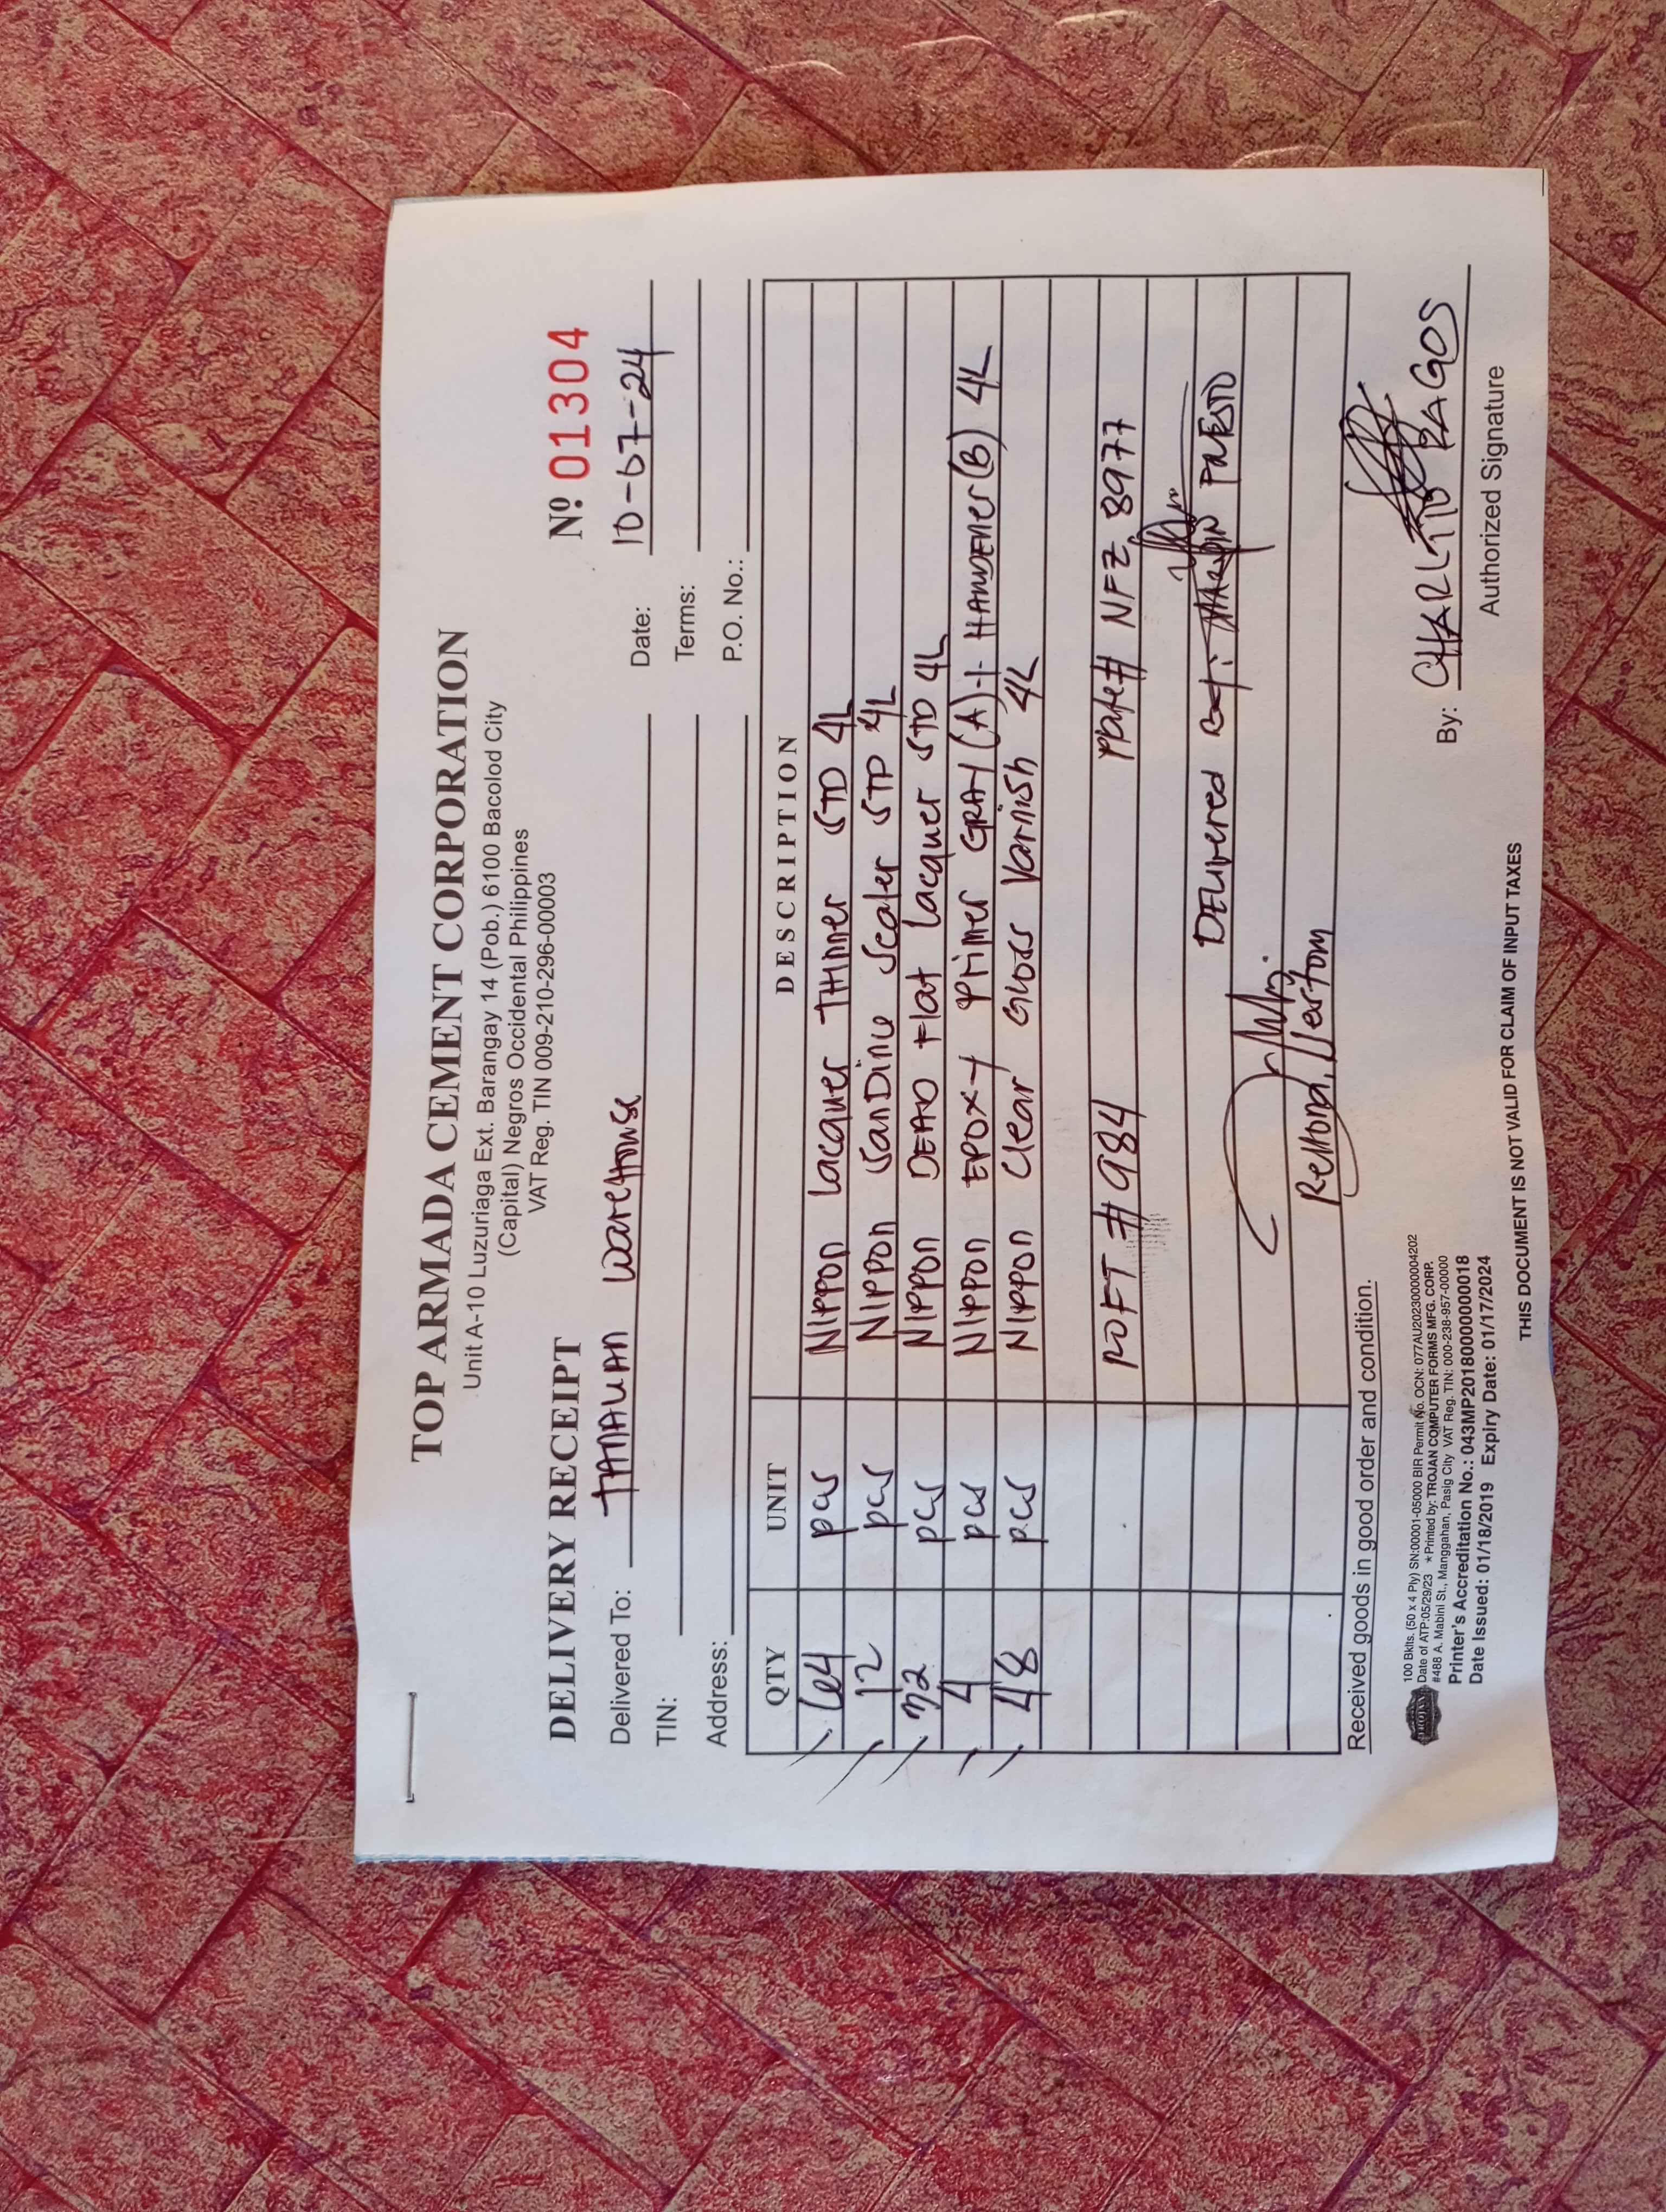 TOP ARMADA CEMENT CORPORATION
Unit A-10 Luzuriaga Ext. Barangay 14 (Pob.) 6100 Bacolod City
(Capital) Negros Occidental Philippines
VAT Reg. TIN 009-210-296-00003
DELIVERY RECEIPT Nº 01304
Delivered To: TANAUAN WareHouse Date: 10-07-24
TIN: Terms:
Address: P.O. No.:
QTY UNIT DESCRIPTION
64 pcs NIPPON Lacquer THinner STD 4L
12 pcs NIPPON SanDing Sealer STD 4L
72 pcs NIPPON DEAD Flat Lacquer STD 4L
4 pcs NIPPON EPOXY Primer GRAY (A) + HARDENer (B) 4L
48 pcs NIPPON Clear Gloss Varnish 4L
POFT # 984 Plate# NFZ 8977
DELIVered
Received goods in good order and condition.
By: CHARLITO RAGOS
Authorized Signature
100 Bklts. (50 x 4 Ply) SN:00001-05000 BIR Permit No. OCN: 077AU20230000004202
Date of ATP:05/29/23 *Printed by: TROJAN COMPUTER FORMS MFG. CORP.
#488 A. Mabini St., Manggahan, Pasig City VAT Reg. TIN: 000-238-957-00000
Printer's Accreditation No.: 043MP20180000000018
Date Issued: 01/18/2019 Expiry Date: 01/17/2024
TROJAN
THIS DOCUMENT IS NOT VALID FOR CLAIM OF INPUT TAXES